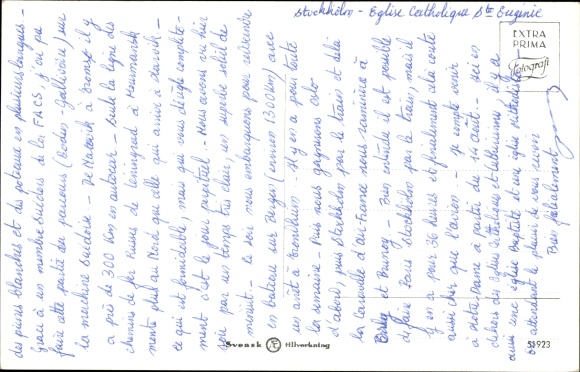 Stockholm - Eglise Catholique Ste Eugénie
EXTRA
PRIMA
Fotografi
des pierres blanches et des poteaux en plusieurs langues -
grâce à un membre suédois de la FACS, j'ai pu
faire cette partie du parcours (Boden - Gällivare) sur
la machine suédoise. De Narvik à Tromsö il y
a près de 300 km en autocar - Seule la ligne des
chemins de fer russes de Leningrad à Mourmansk
monte plus au Nord que celle qui arrive à Narvik -
ce qui est formidable, mais qui vous dérègle complète-
ment c'est le jour perpétuel - Nous avons vu hier
soir par un temps très clair, un superbe soleil de
minuit - Ce soir nous embarquons pour redescendre
en bateau sur Bergen (environ 1300 km) avec
un arrêt à Trondheim - il y en a pour toute
la semaine - Puis nous gagnerons Oslo
d'abord, puis Stockholm par le train et delà
la caravelle d'Air-France nous ramènera à
et Bourney - Bien entendu il est possible
de faire Paris Stockholm par le train, mais il
y en a pour 36 heures et finalement cela coûte
aussi cher que l'avion - Je compte venir
à Notre Dame à partir du 14 août - ici en
dehors des églises Catholiques et luthériennes il y a
aussi une église baptiste et une église
En attendant le plaisir de vous revoir
Bien filialement
Svensk tillverkning
53923